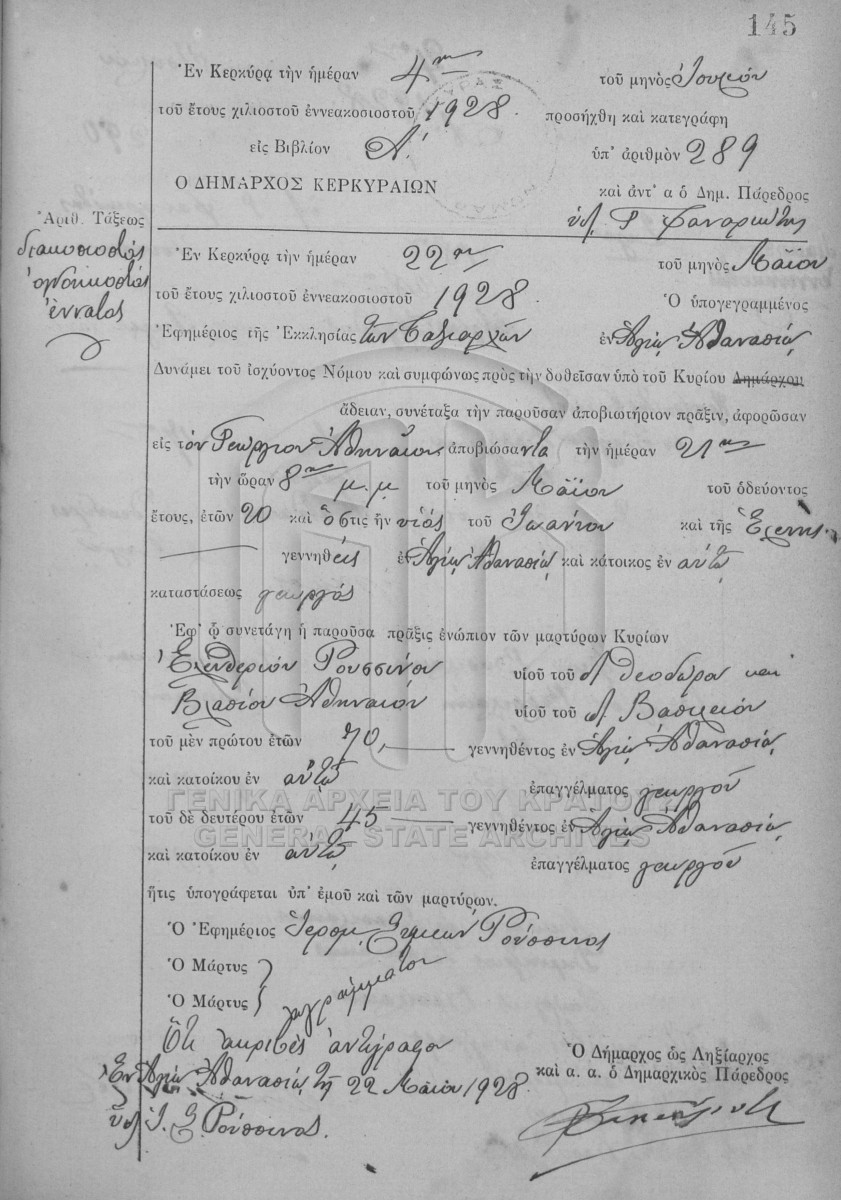 145
Ἐν Κερκύρᾳ τὴν ἡμέραν 4ην τοῦ μηνὸς Ἰουνίου
τοῦ ἔτους χιλιοστοῦ ἐννεακοσιοστοῦ 1928. προσήχθη καὶ κατεγράφη
εἰς Βιβλίον Α΄ ὑπ' ἀριθμὸν 289
Ο ΔΗΜΑΡΧΟΣ ΚΕΡΚΥΡΑΙΩΝ
καὶ ἀντ' α ὁ Δημ. Πάρεδρος
Ἀριθ. Τάξεως
διακοσιοστός
ὀγδοηκοστός
ἔννατος
Ἐν Κερκύρᾳ τὴν ἡμέραν 22αν τοῦ μηνὸς Μαΐου
τοῦ ἔτους χιλιοστοῦ ἐννεακοσιοστοῦ 1928 Ὁ ὑπογεγραμμένος
Ἐφημέριος τῆς Ἐκκλησίας τῶν Ταξιαρχῶν ἐν Ἁγίῳ Ἀθανασίῳ
Δυνάμει τοῦ ἰσχύοντος Νόμου καὶ συμφώνως πρὸς τὴν δοθεῖσαν ὑπὸ τοῦ Κυρίου Δημάρχου
ἄδειαν, συνέταξα τὴν παροῦσαν ἀποβιωτήριον πρᾶξιν, ἀφορῶσαν
εἰς τὸν Γεώργιον Ἀθηναῖον ἀποβιώσαντα τὴν ἡμέραν 21ην
τὴν ὥραν 8ην μ.μ. τοῦ μηνὸς Μαΐου τοῦ ὁδεύοντος
ἔτους, ἐτῶν 20 καὶ ὅστις ἦν υἱός τοῦ Ἰωάννου καὶ τῆς Ἑλένης.
γεννηθείς ἐν Ἁγίῳ Ἀθανασίῳ καὶ κάτοικος ἐν αὐτῷ
καταστάσεως γεωργός
Ἐφ' ᾧ συνετάγη ἡ παροῦσα πρᾶξις ἐνώπιον τῶν μαρτύρων Κυρίων
Ἐλευθερίου Ρουσσίνου υἱοῦ τοῦ Θεοδώρα καὶ
Βλασίου Ἀθηναίου υἱοῦ τοῦ Βασιλείου
τοῦ μὲν πρώτου ἐτῶν 70, γεννηθέντος ἐν Ἁγίῳ Ἀθανασίῳ
καὶ κατοίκου ἐν αὐτῷ ἐπαγγέλματος γεωργοῦ
ΓΕΝΙΚΑ ΑΡΧΕΙΑ ΤΟΥ ΚΡΑΤΟΥΣ
τοῦ δὲ δευτέρου ἐτῶν 45 γεννηθέντος ἐν Ἁγίῳ Ἀθανασίῳ
GENERAL STATE ARCHIVES
καὶ κατοίκου ἐν αὐτῷ ἐπαγγέλματος γεωργοῦ
ἥτις ὑπογράφεται ὑπ' ἐμοῦ καὶ τῶν μαρτύρων.
Ὁ Ἐφημέριος Ἱερομ. Συμεών Ρούσσινος
Ὁ Μάρτυς
Ὁ Μάρτυς ἀγράμματοι
Ὅτι ἀκριβὲς ἀντίγραφον
Ἐν Ἁγίῳ Ἀθανασίῳ τῇ 22 Μαΐου 1928.
Ρούσσινος.
Ὁ Δήμαρχος ὡς Ληξίαρχος
καὶ α. α. ὁ Δημαρχικὸς Πάρεδρος